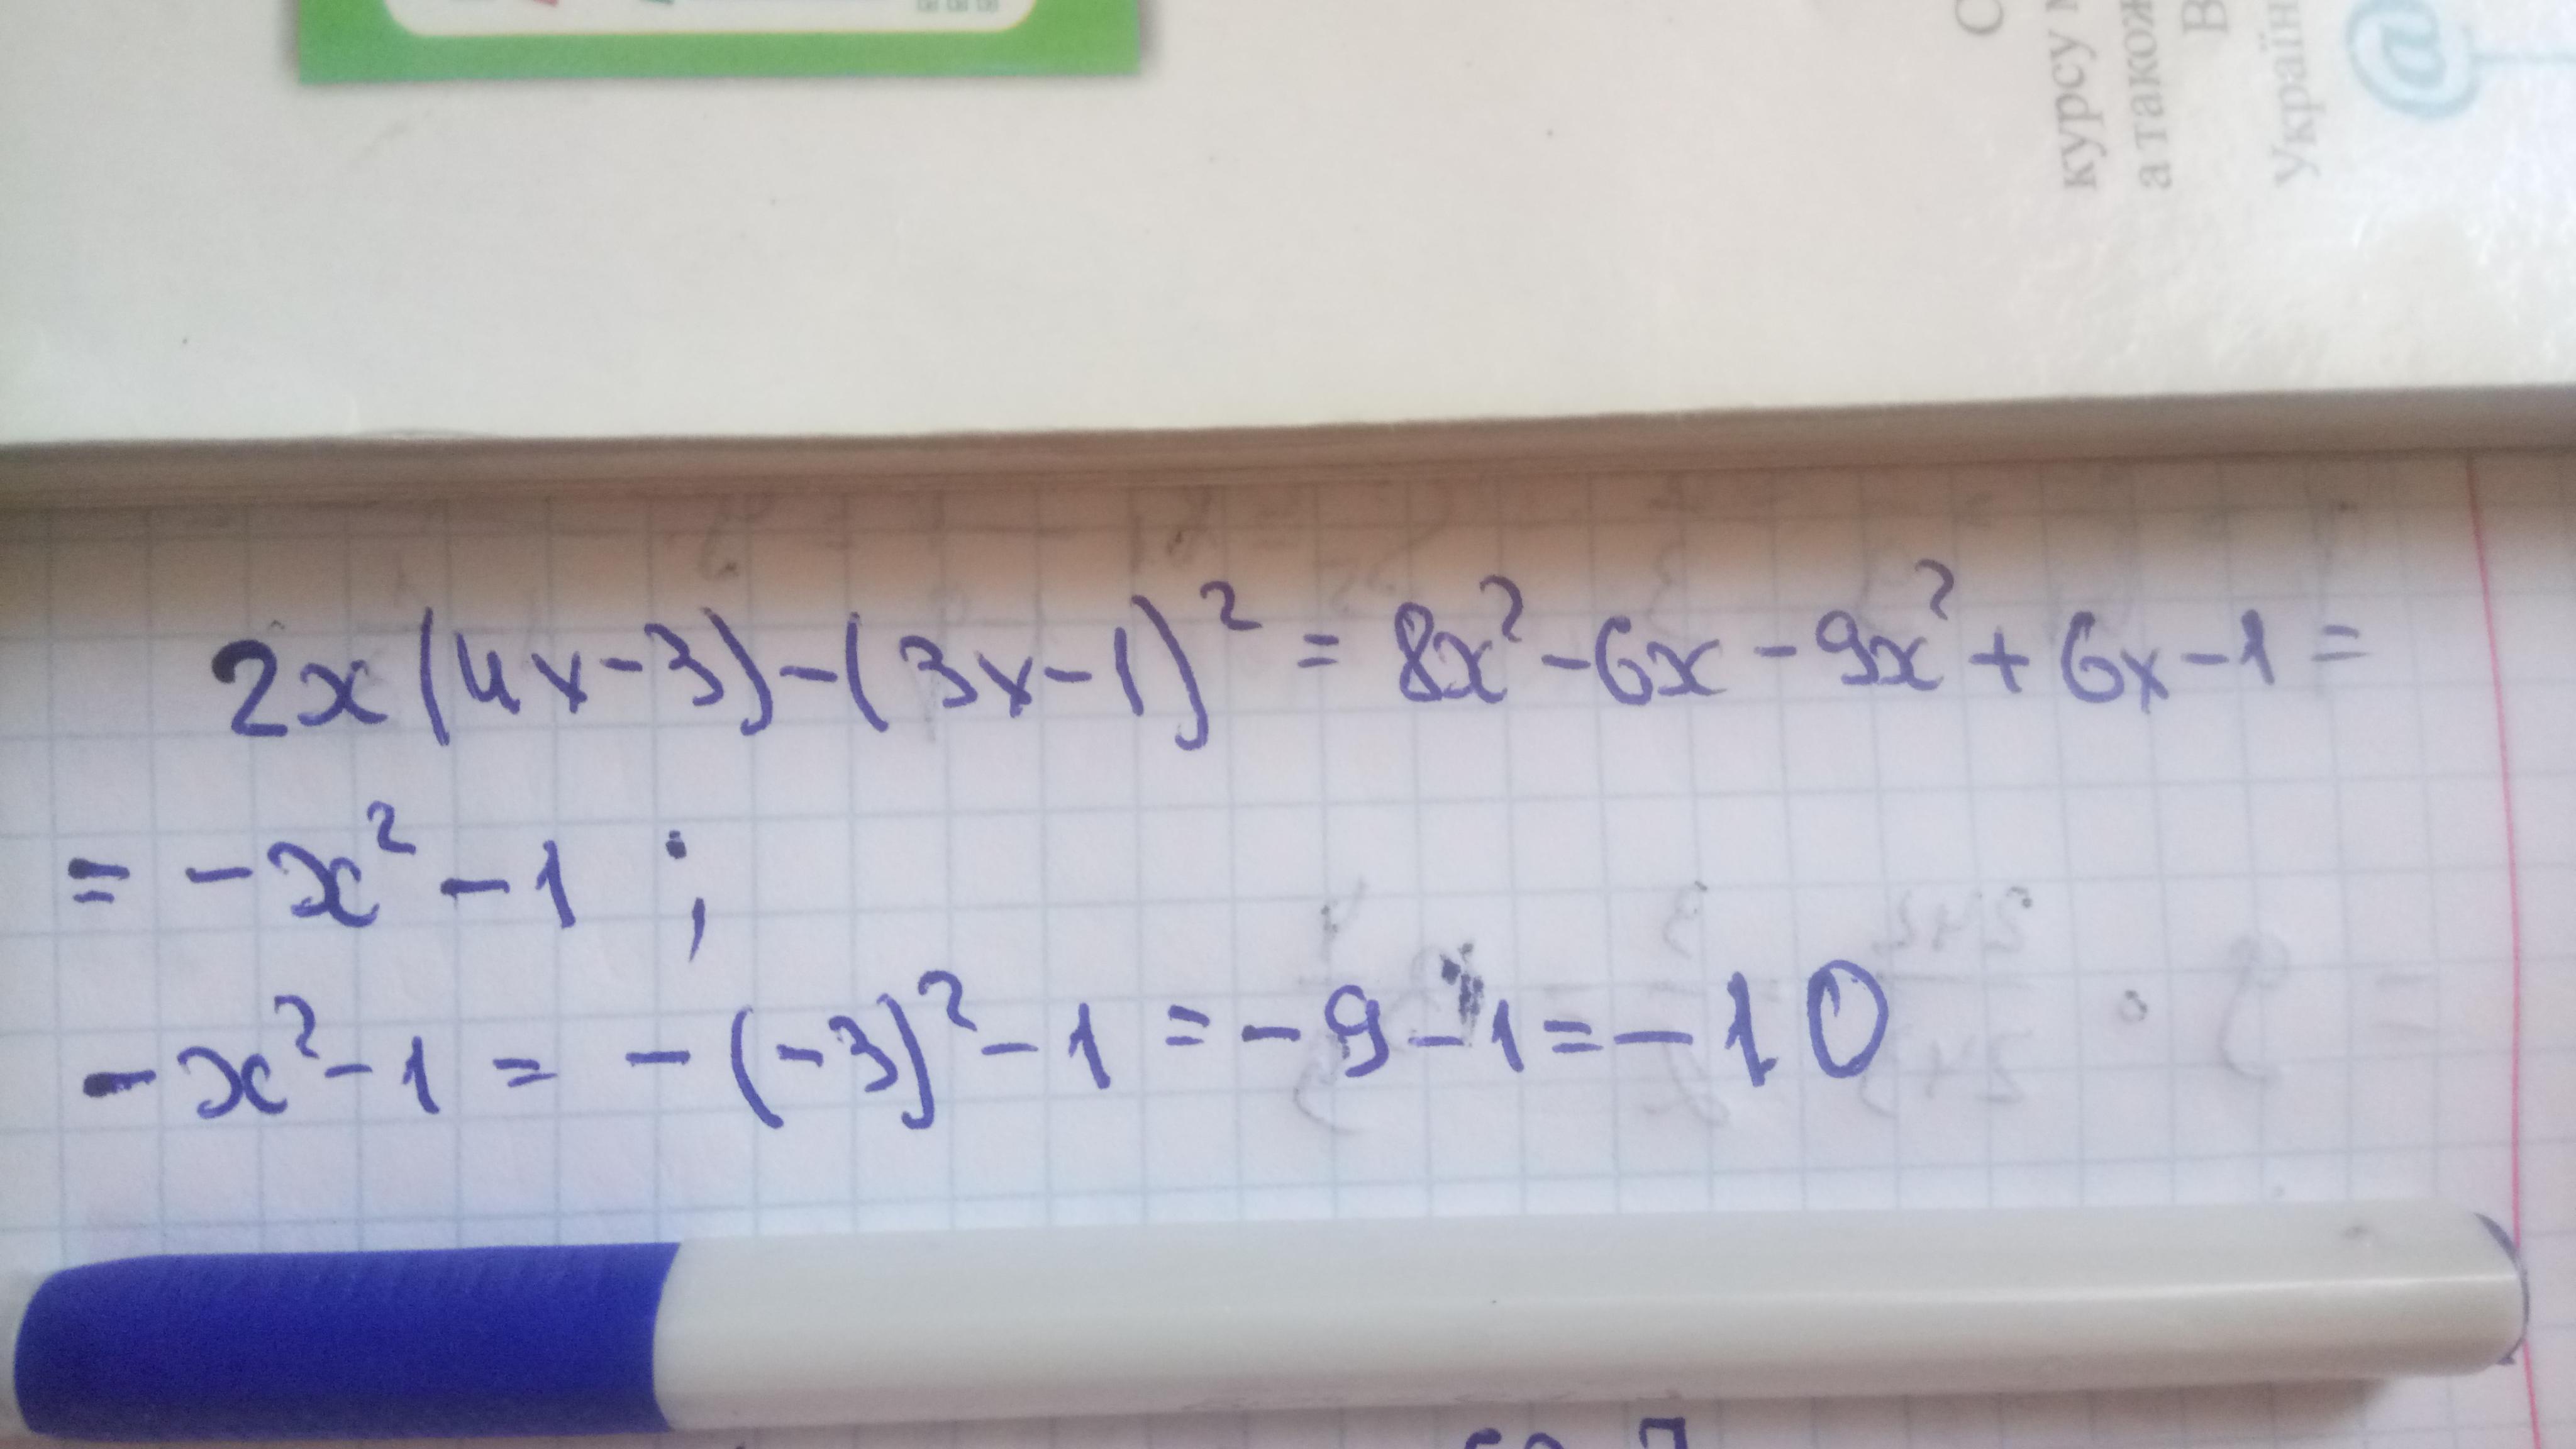 курсу
а також
В
Україн
@
2x(4x-3)-(3x-1)² = 8x²-6x-9x²+6x-1=
= -x²-1 ;
-x²-1 = -(-3)²-1 = -9-1=-10